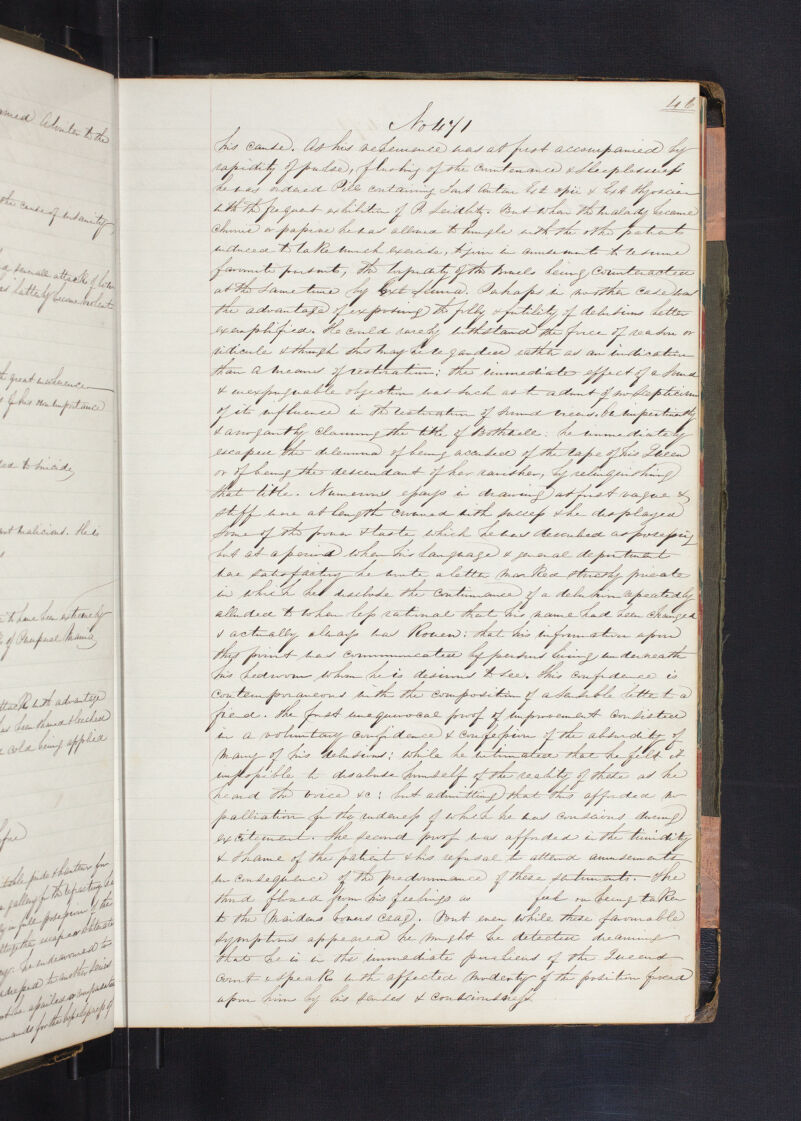 46
No 471
his cause. As his vehemence was at first accompanied by
rapidity of pulse, flushing of the countenance & sleeplessness
he was ordered Pill containing Tart Antim Ext opii & Ext Hyosciam
with the frequent exhibition of P. Seidlitz. But when the malady became
chronic or he was allowed to mingle with the other patients
induced to take much exercise, to join in amusements to resume
favorite pursuits, the torpidity of the Bowels being counteracted
at the same time by Ext Senna. Perhaps in no other case was
the advantage of exposing the folly & futility of delusions better
exemplified. He could rarely withstand the force of reason or
ridicule & though this may be regarded rather as an indication
than a means of restoration; the immediate effect of a sound
& inexpugnable objection was such as to admit of no scepticism
of its influence in the restoration of sound views. Impertinently
& arrogantly claiming the title of Bothwell; he immediately
escaped the dilemma of being accused of the rape of his Queen
or of being the descendant of her ravisher, by relinquishing
that title. Numerous essays in drawing at first vague &
stiff were at length crowned with success & he displayed
some of the power & taste which he was described as possessing
but at a period when his language & general deportment
were satisfactory he wrote a letter marked strictly private
in which he disclosed the continuance of a delusion repeatedly
alluded to when less rational that his name had been changed
& actually always was Rouen; that his information upon
this point was communicated by persons living underneath
his bedroom whom he is desirous to see. This confidence is
contemporaneous with the composition of a sensible letter to a
friend. The first unequivocal proof of improvement consisted
in a voluntary confidence & confession of the absurdity of
many of his delusions; while he intimated that he felt it
impossible to disabuse himself of the reality of these as he
heard the voice &c; but admitting that this afforded no
palliation for the rudeness of which he was conscious during
excitement. The second proof was afforded in the timidity
& shame of the patient & his refusal to attend amusements
in consequence of the predominance of these sentiments. The
third flowed from his feelings as feel on being taken
to the Maidens Bower Craig. But even while these favourable
symptoms appeared he might be detected dreaming
that he is in the immediate purlieus of the Queens
court & speaks with affected modesty of the position forced
upon him by his senses & consciousness.